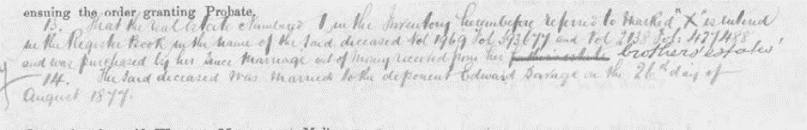 ensuing the order granting Probate.
13. That the real estate Numbered 1 in the Inventory hereinbefore referred to marked "X" is entered
in the Register Book in the name of the said deceased Vol 1969 Fol 393677 and Vol 2138 Fol: 427488
and was purchased by her since marriage out of money received from her brothers' estates
14. The said deceased was married to the deponent Edward Savage on the 26th day of
August 1877.